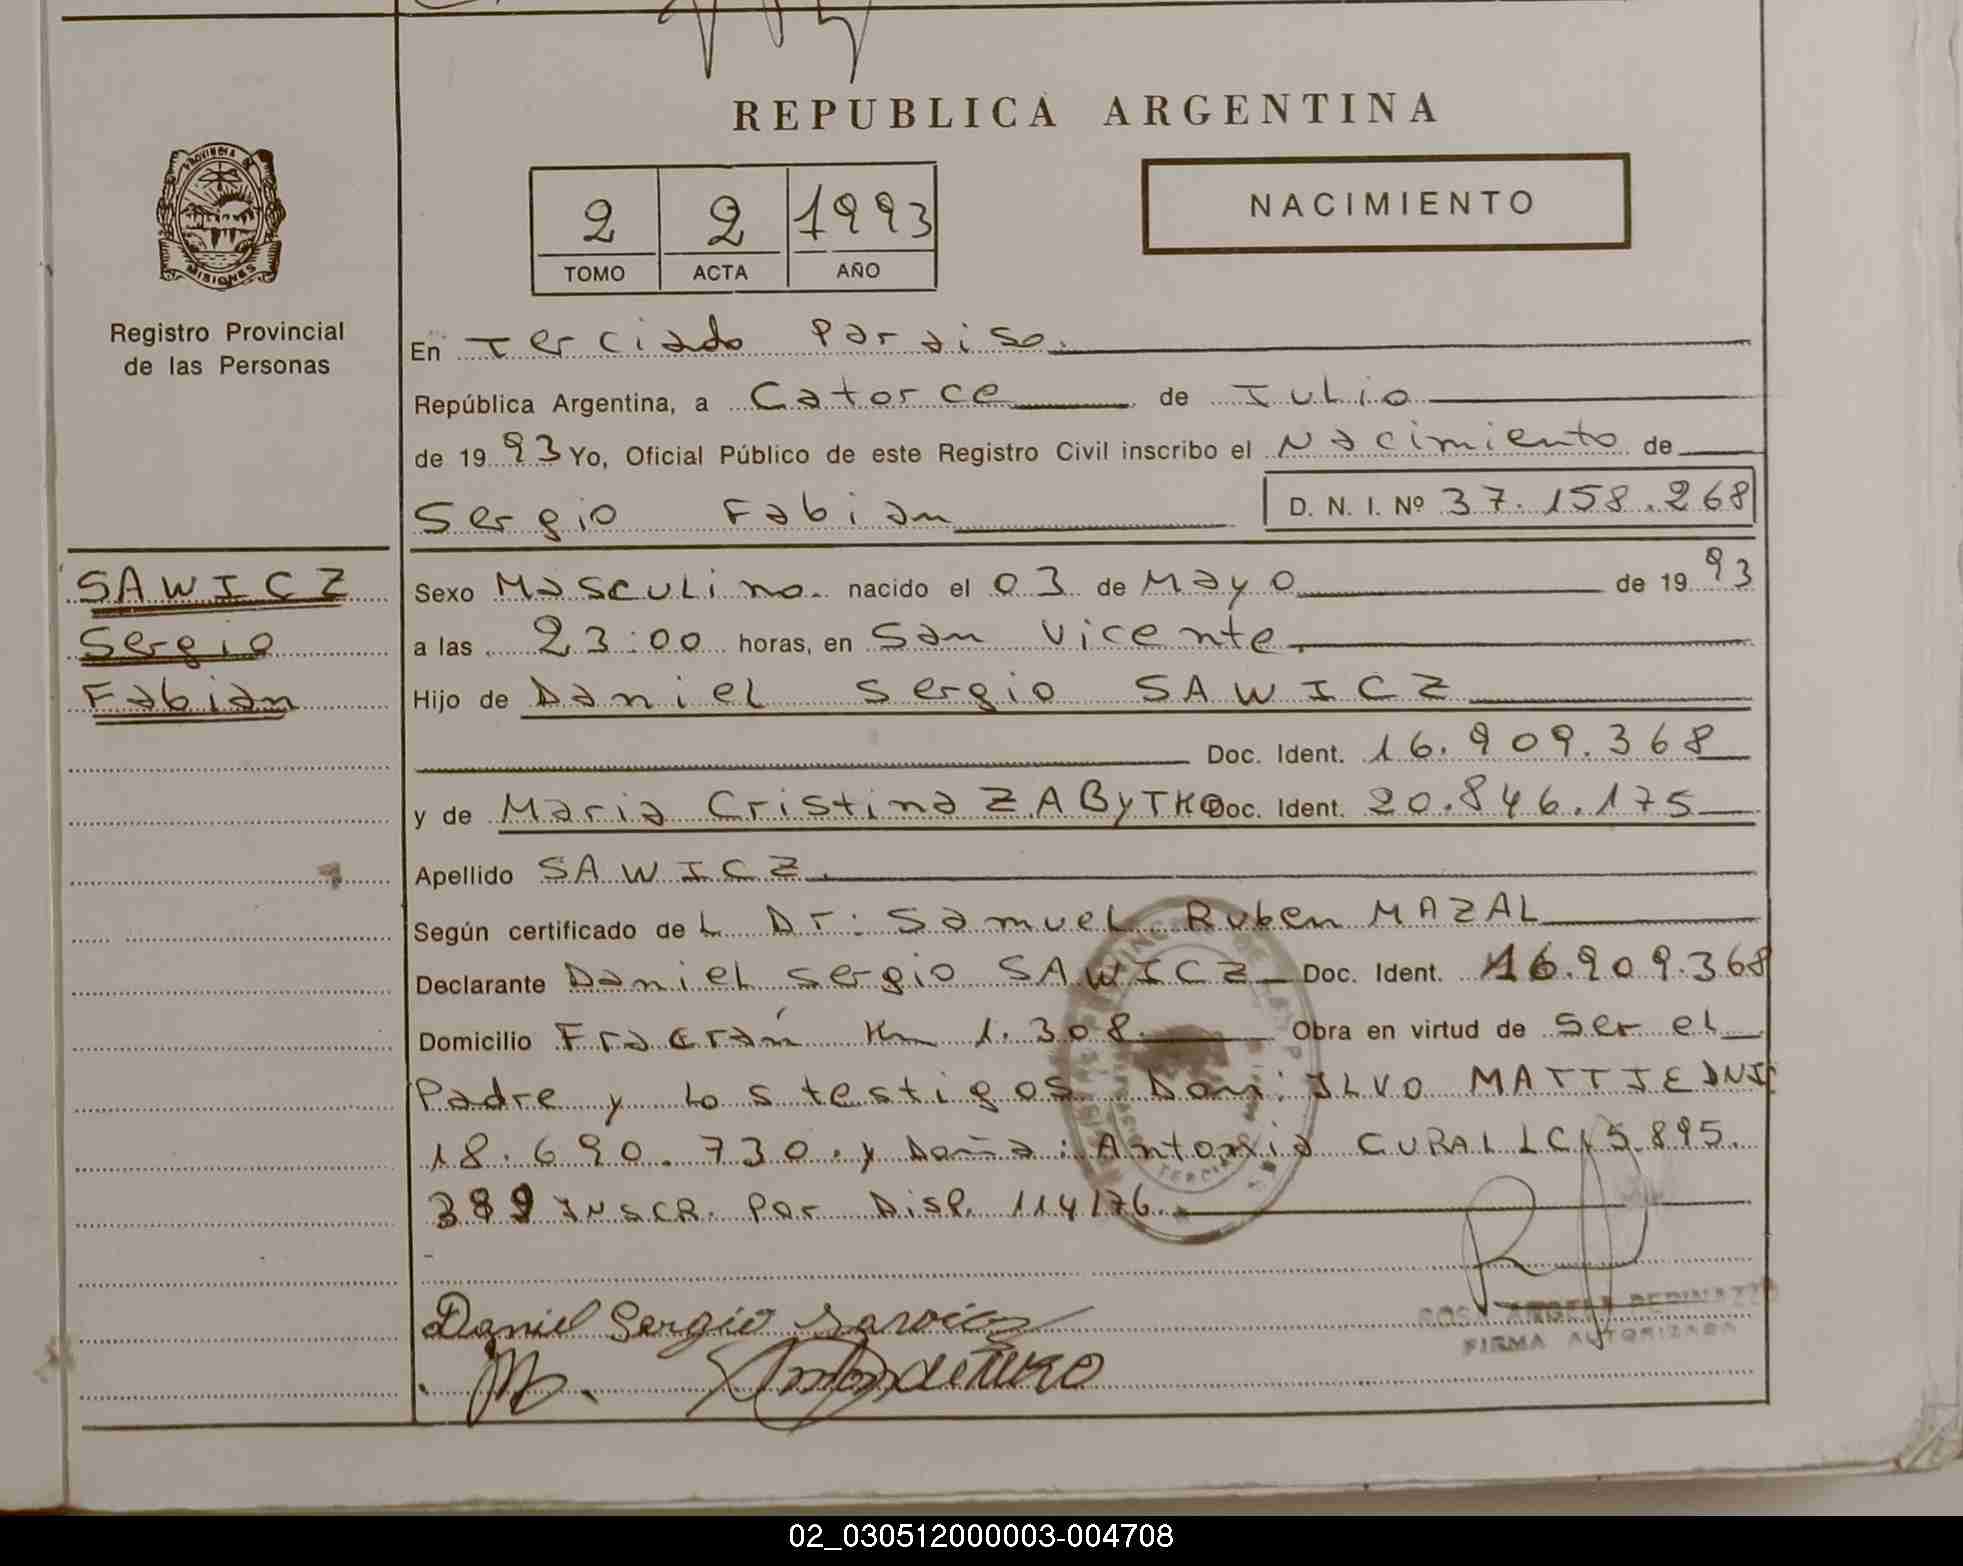 REPUBLICA ARGENTINA
PROVINCIA DE
MISIONES
Registro Provincial
de las Personas
2 2 1993
TOMO ACTA AÑO
NACIMIENTO
En Terciado Paraiso.
República Argentina, a Catorce de Julio
de 1993 Yo, Oficial Público de este Registro Civil inscribo el Nacimiento de
Sergio Fabian D. N. I. Nº 37.158.268
SAWICZ
Sergio
Fabian
Sexo Masculino. nacido el 03 de Mayo de 1993
a las 23:00 horas, en San Vicente.
Hijo de Daniel Sergio SAWICZ
Doc. Ident. 16.909.368
y de Maria Cristina ZAByTKO Doc. Ident. 20.846.175
Apellido SAWICZ.
Según certificado de L Dr: Samuel Ruben MAZAL
Declarante Daniel Sergio SAWICZ Doc. Ident. 16.909.368
Domicilio Fracrán Km 1.308. Obra en virtud de ser el
Padre y los testigos Don: ILVO MATTJE DNI
18.690.730. y Doña: Antonia CURAL LC 5.895.
389 INSCR. Por DISP. 114/76.
Daniel Sergio Sawicz
ROSA ANGELA PEDINAZZO
FIRMA AUTORIZADA
02_030512000003-004708